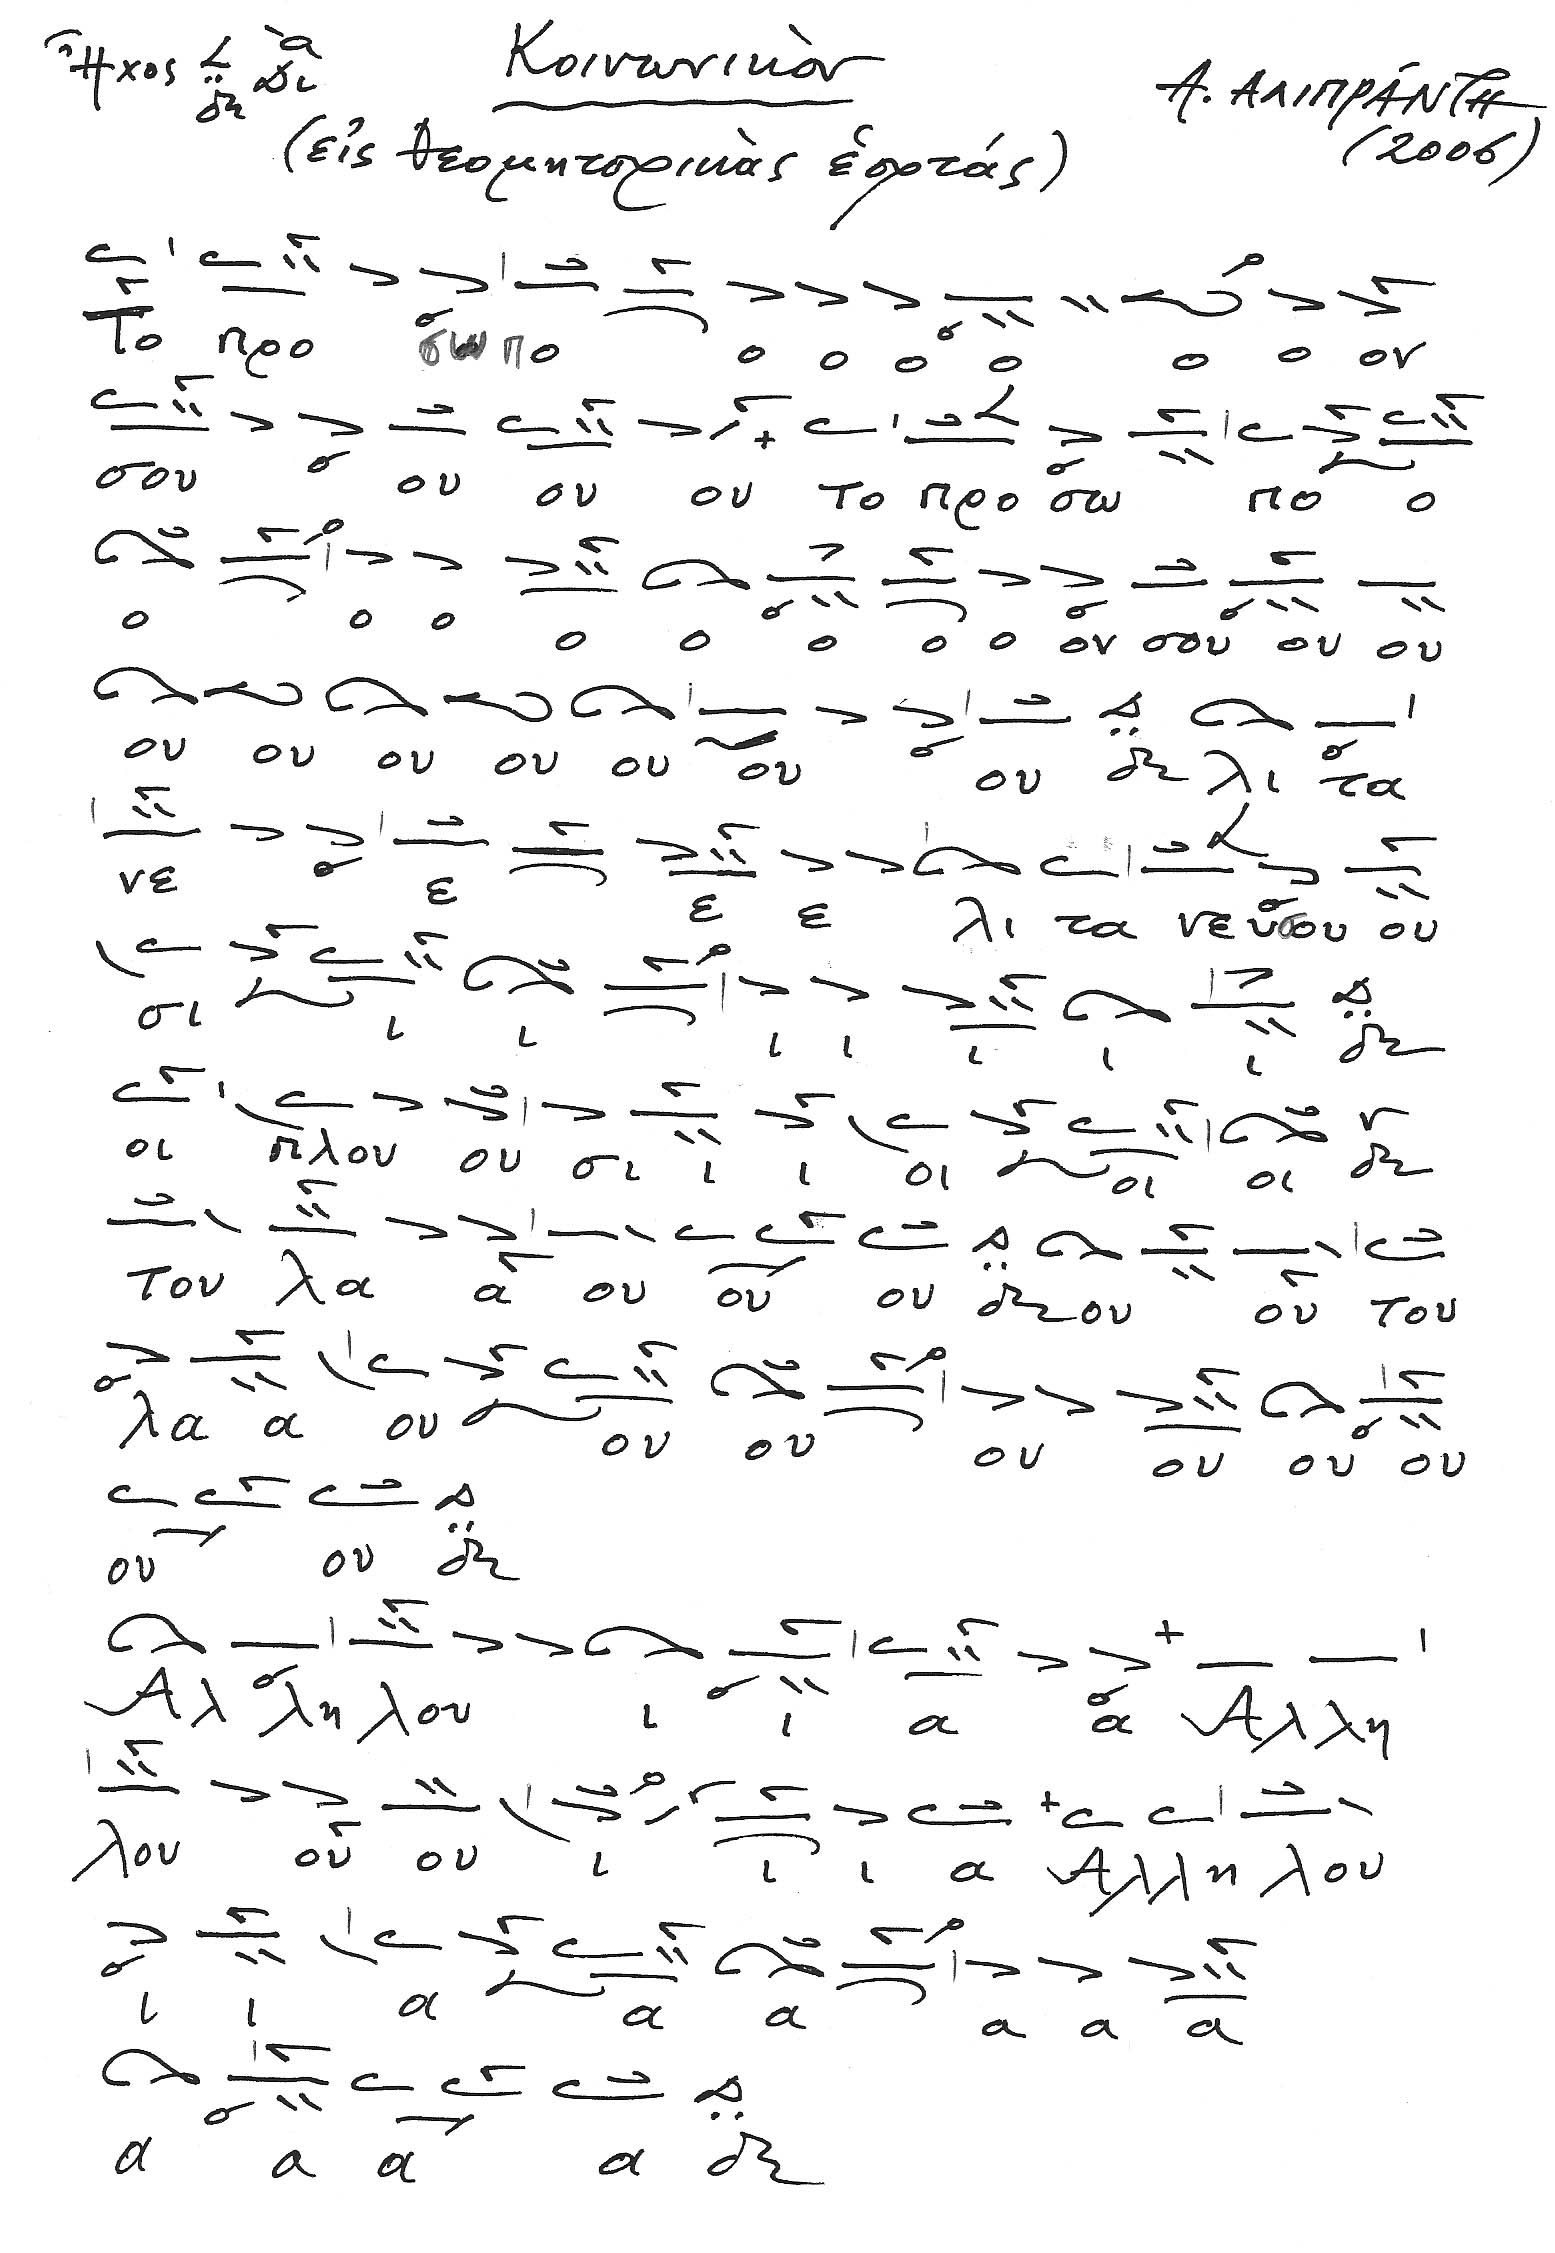 Ἦχος Δι ὰ Κοινωνικὸν Α. ΑΛΙΠΡΆΝΤΗ
(εἰς θεομητορικὰς ἑορτάς) (2006)
Το προ σω πο ο ο ο ο ο ο ον
σου ου ου ου το προ σω πο ο
ο ο ο ο ο ο ο ο ον σου ου ου
ου ου ου ου ου ου ου λι τα
νε ε ε ε λι τα νευ σου ου
σι ι ι ι ι ι ι ι
οι πλου ου σι ι ι οι οι οι
του λα α ου ου ου ου ου του
λα α ου ου ου ου ου ου ου
ου ου
Αλ λη λου ι ι α α Αλλη
λου ου ου ι ι ι α Αλλη λου
ι ι α α α α α α
α α α α